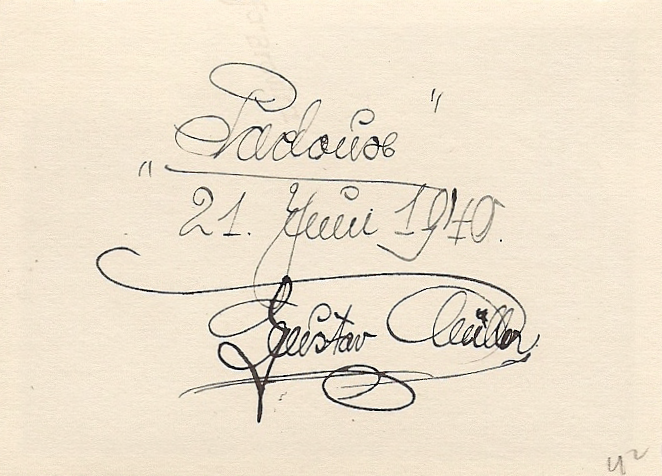 „Padoux"
21. Juni 1940.
Gustav Müller
42